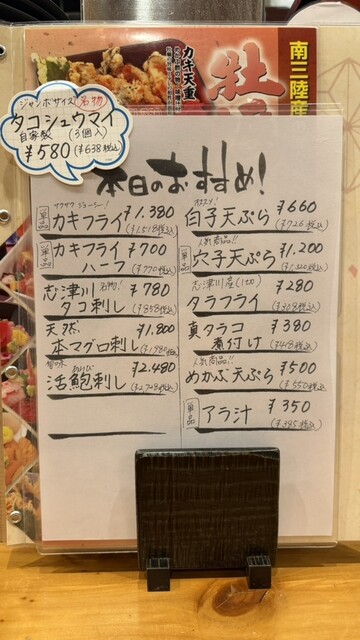 南三陸産
牡
カキ天重
ジャンボサイズ 名物
タコシュウマイ
自家製 (3個入)
¥580(¥638税込)
本日のおすすめ!
サクサク ジューシー!
単品 カキフライ ¥1,380
(¥1,518税込)
単品 カキフライ ¥700
ハーフ (¥770税込)
志津川 名物! ¥780
タコ刺し (¥858税込)
天然 ¥1,800
本マグロ刺し (¥1980税込)
活鮑刺し ¥2,480
(¥2,728税込)
オススメ! ¥660
白子天ぷら (¥726税込)
人気商品!! ¥1,200
穴子天ぷら (¥1,320税込)
志津川産(1コ) ¥280
タラフライ (¥308税込)
真タラコ ¥380
煮付け (¥418税込)
人気商品!! ¥500
めかぶ天ぷら (¥550税込)
単品 アラ汁 ¥350
(¥385税込)